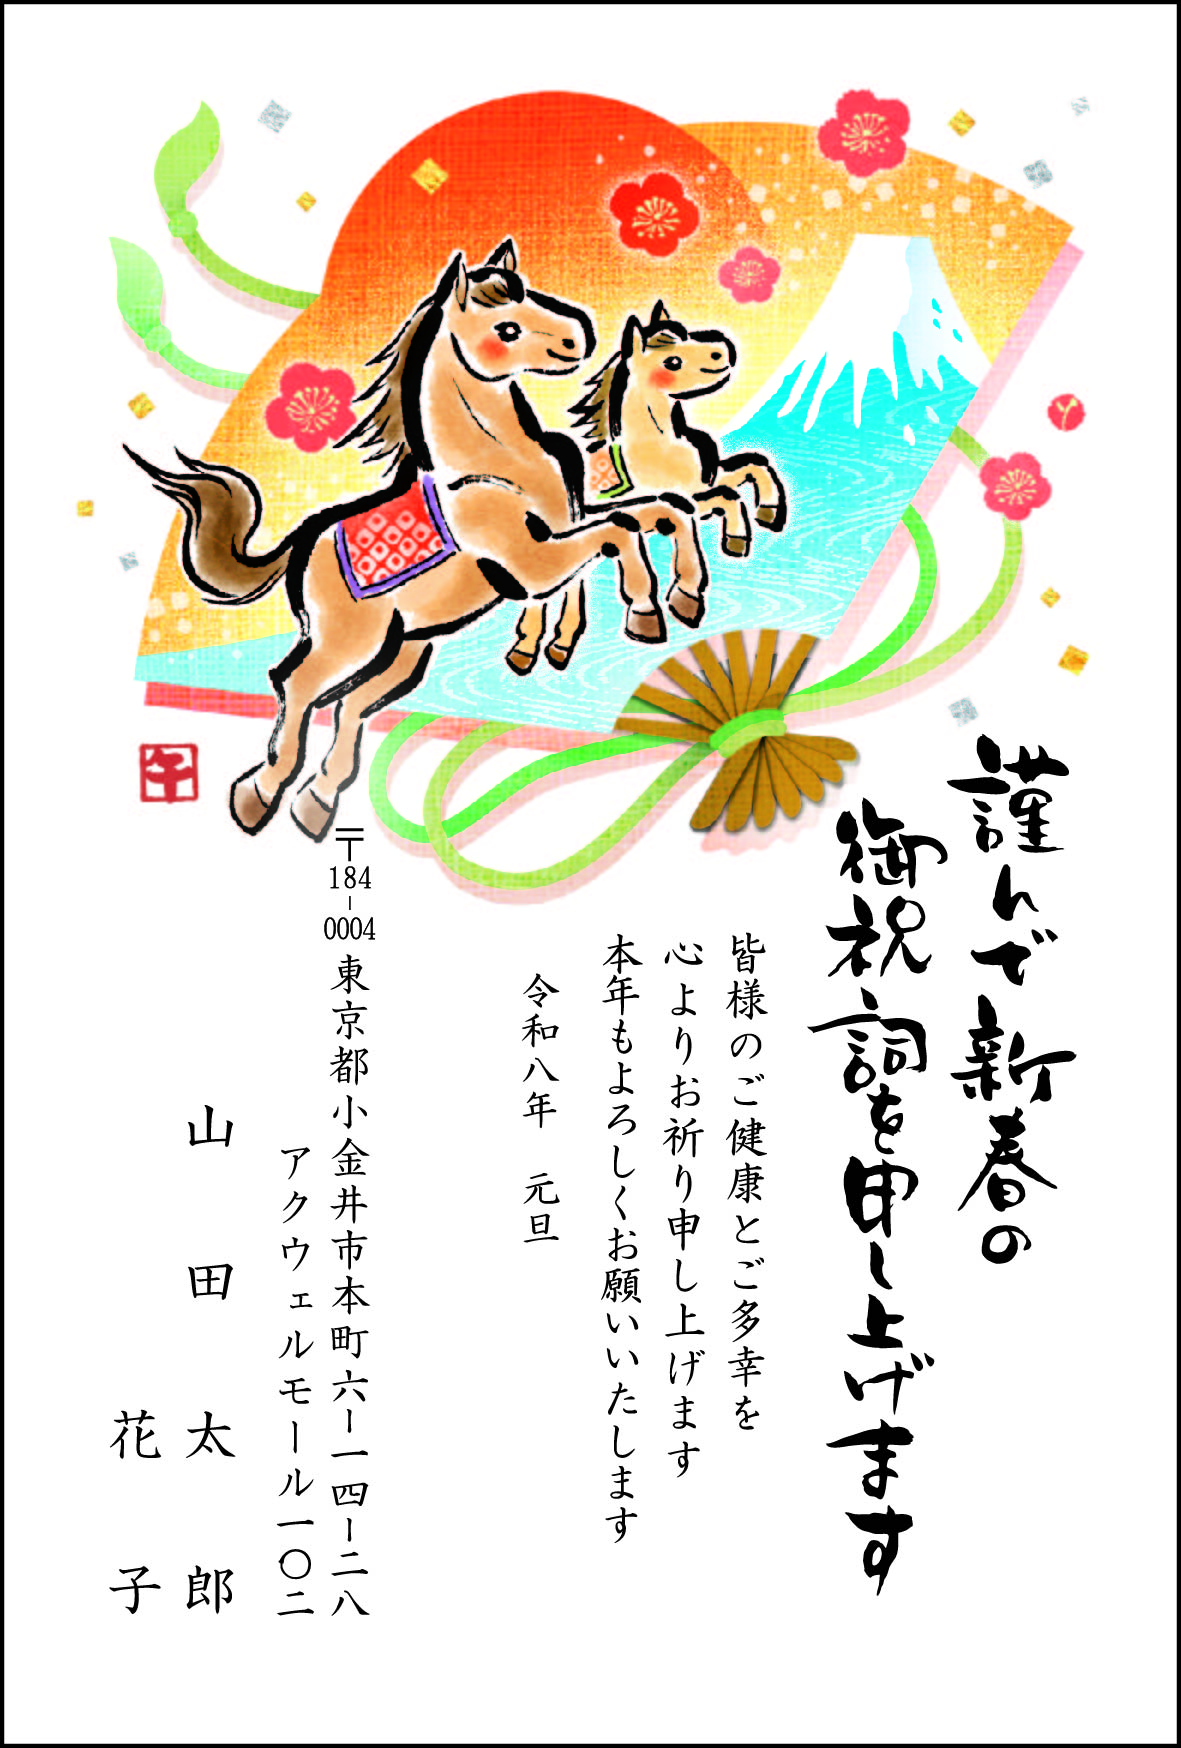 謹んで新春の
御祝詞を申し上げます
皆様のご健康とご多幸を
心よりお祈り申し上げます
本年もよろしくお願いいたします
令和八年　元旦
〒184-0004
東京都小金井市本町六ー一四ー二八
アクウェルモール一〇二
山田太郎
花子
午